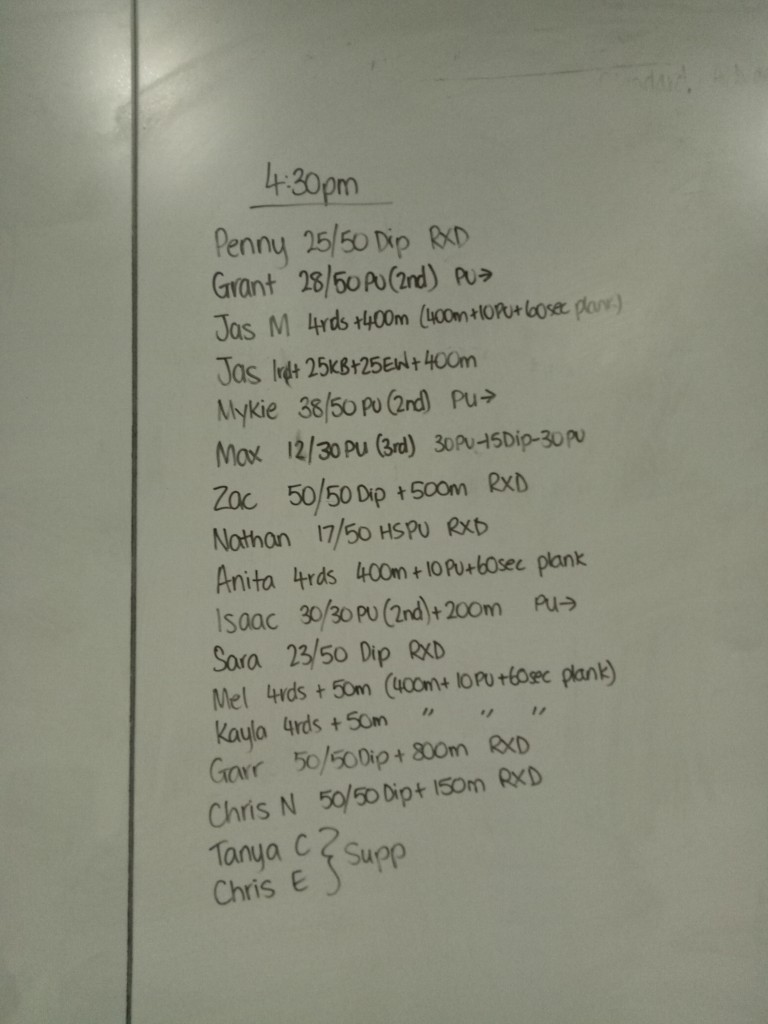 4:30pm
Penny 25/50 Dip RXD
Grant 28/50 PU (2nd) PU→
Jas M 4rds + 400m (400m + 10PU + 60sec plank)
Jas 1rd + 25KB + 25EW + 400m
Mykie 38/50 PU (2nd) PU→
Max 12/30 PU (3rd) 30PU-15Dip-30PU
Zac 50/50 Dip + 500m RXD
Nathan 17/50 HSPU RXD
Anita 4rds 400m + 10PU + 60sec plank
Isaac 30/30 PU (2nd) + 200m PU→
Sara 23/50 Dip RXD
Mel 4rds + 50m (400m + 10PU + 60sec plank)
Kayla 4rds + 50m " " "
Garr 50/50 Dip + 800m RXD
Chris N 50/50 Dip + 150m RXD
Tanya C } Supp
Chris E